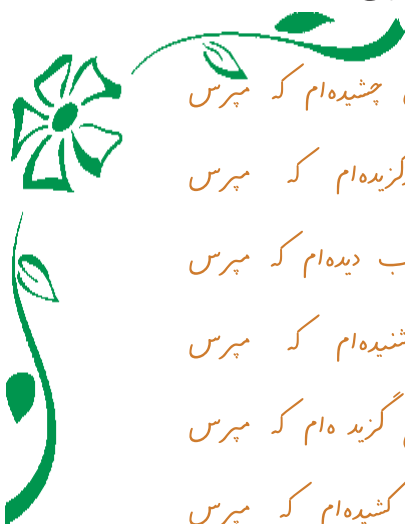 چشیده‌ام که مپرس
گزیده‌ام که مپرس
دیده‌ام که مپرس
شنیده‌ام که مپرس
گزید ه‌ام که مپرس
کشیده‌ام که مپرس